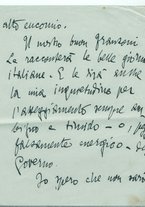 alto encomio.
Il nostro buon Granzoni
Le racconterà le belle giornate
italiane. E le dirà anche
la mia inquietudine per
l'atteggiamento sempre
timido - o,
falsamente energico -
Governo.
Io spero che non sarà